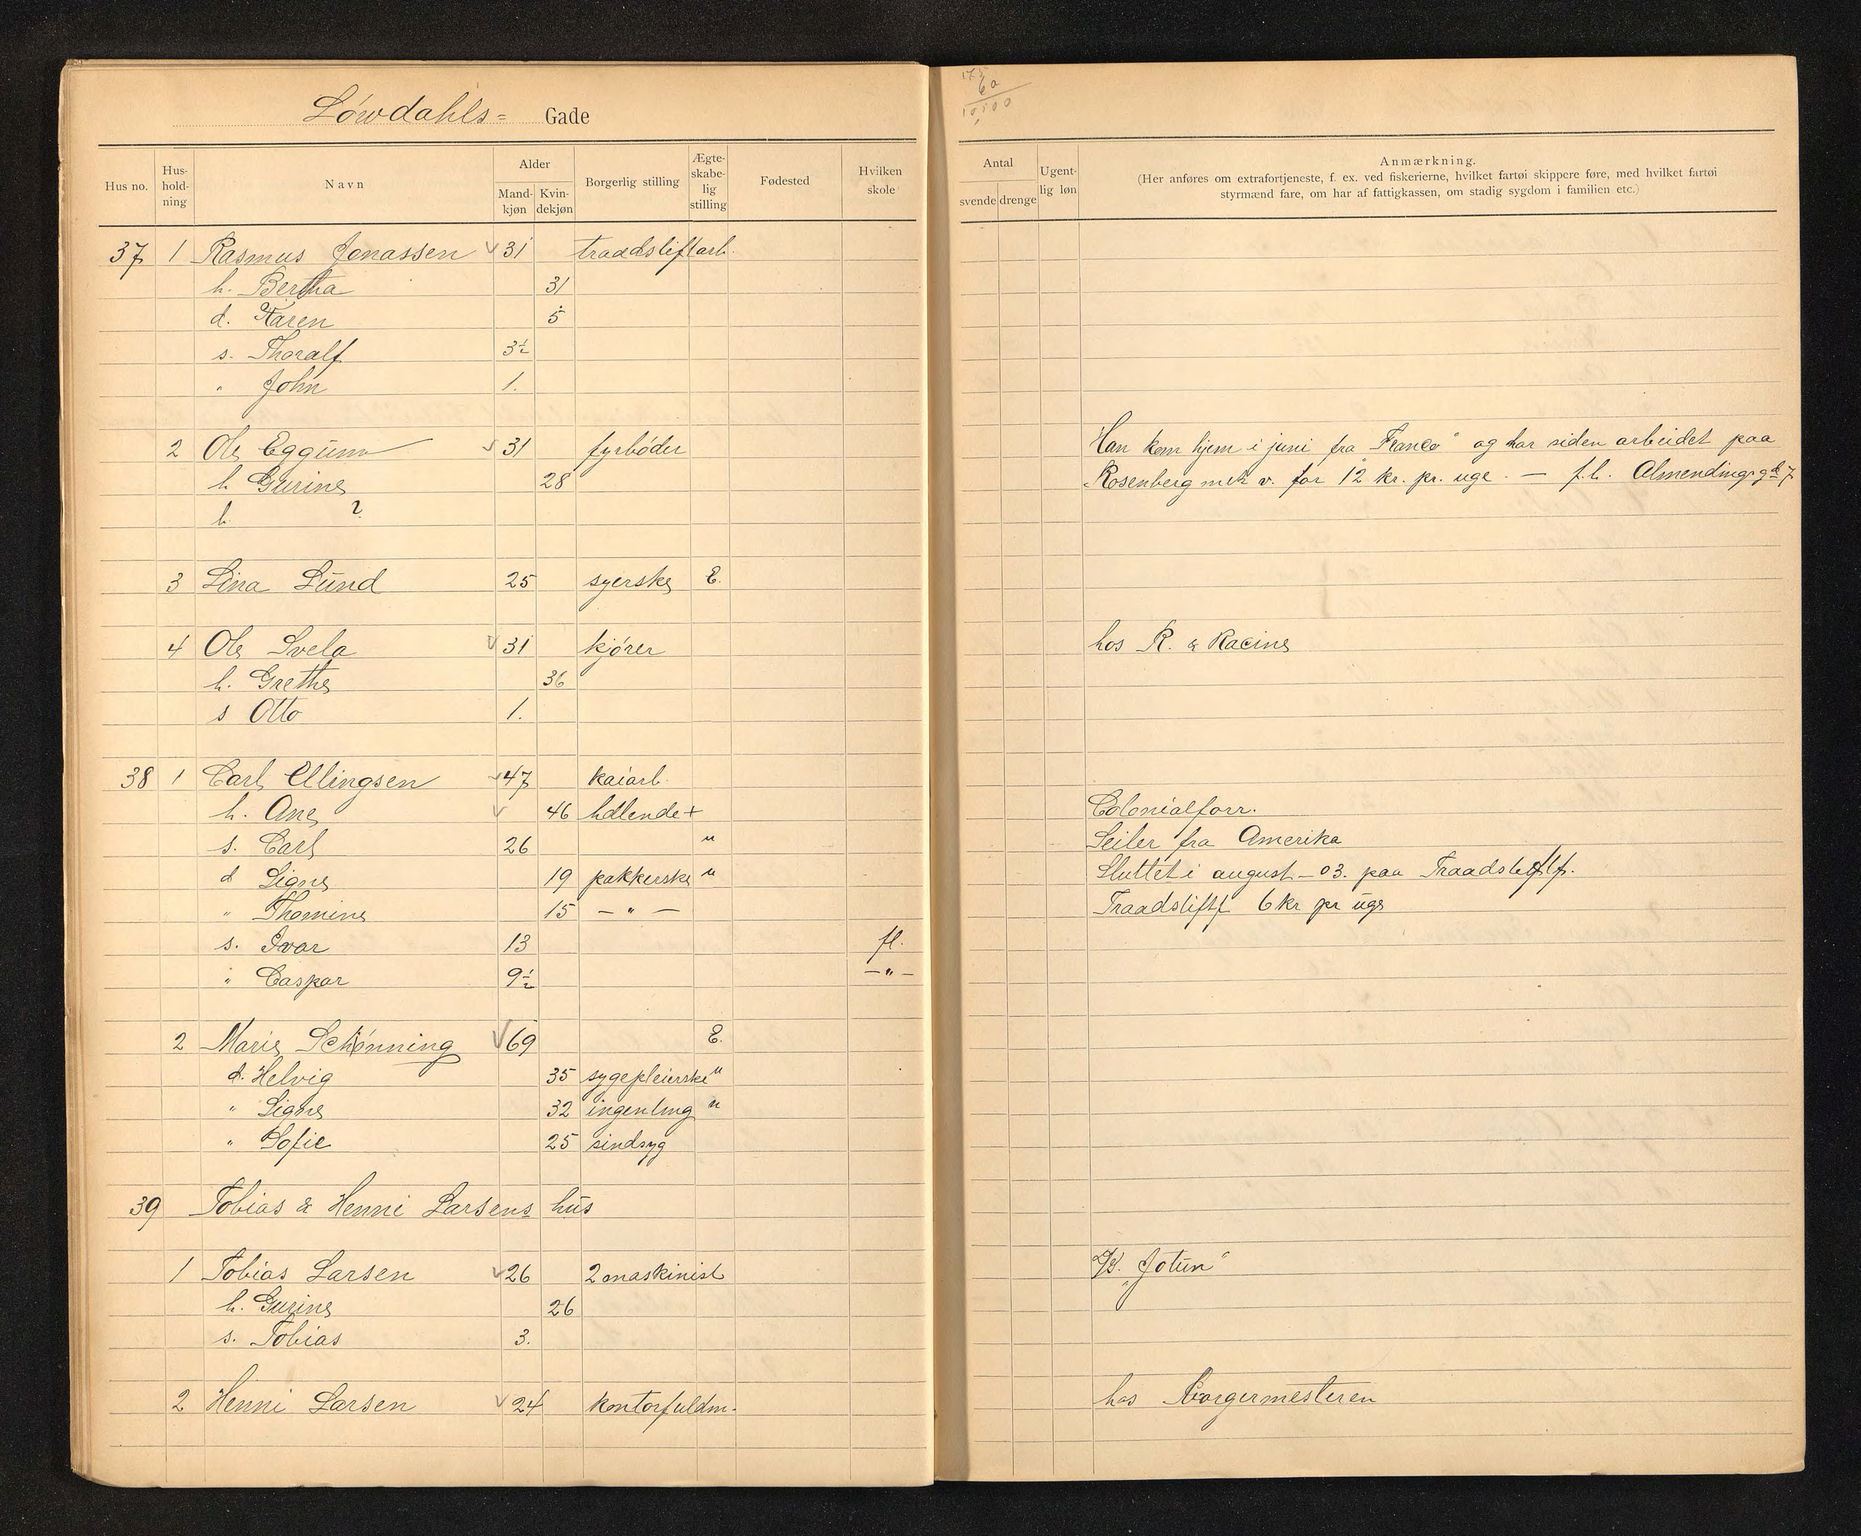 Løwdahls= Gade
Hus no. Hus-hold-ning Navn Alder Mand-kjøn Kvin-dekjøn Borgerlig stilling Ægte-skabe-lig stilling Fødested Hvilken skole
37 1 Rasmus Jonassen 31 traadstiftarb.
h. Bertha 31
d. Karen 5
s. Thoralf 3½
" John 1.
2 Ole Eggum 31 fyrbøder
h Gurine 28
b. ?
3 Lina Lund 25 syerske E.
4 Ole Svela 31 kjører
h. Grethe 36
s Otto 1.
38 1 Carl Ellingsen 47 kaiarb.
h. Ane 46 hdlende +
s. Carl 26 "
d Signe 19 pakkerske "
" Thomine 15 — " —
s. Ivar 13 fl.
" Caspar 9½ — " —
2 Marie Schønning 69 E.
d. Helvig 35 sygepleierske "
" Signe 32 ingenting "
" Sofie 25 sindsyg
39 Tobias & Henni Larsens hus
1 Tobias Larsen 26 2 maskinist
h. Gurine 26
s. Tobias 3.
2 Henni Larsen 24 kontorfuldm.
175
60
10500
Antal svende drenge Ugent-lig løn
Anmærkning.
(Her anføres om extrafortjeneste, f. ex. ved fiskerierne, hvilket fartøi skippere føre, med hvilket fartøi
styrmænd fare, om har af fattigkassen, om stadig sygdom i familien etc.)
Han kom hjem i juni fra "Franco" og har siden arbeidet paa
Rosenberg mek v. for 12 kr. pr. uge. — f.b. Almendingsgd 7
hos R. & Racine
Colonialforr.
Seiler fra Amerika
Sluttet i august — 03. paa Traadstiftf.
Traadstiftf 6 kr pr uge
D/S. "Jotun"
hos Borgermesteren